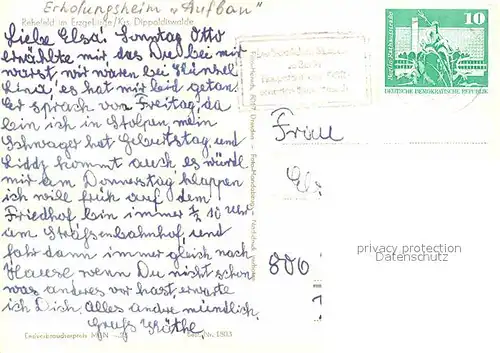 Erholungsheim "Aufbau"
Rehefeld im Erzgebirge/Krs. Dippoldiswalde
Liebe Elsa! Sonntag Otto
erzählte mir, das Du bei mir
warst, wir waren bei Hänsel
Lina, es hat mir leid getan.
Er sprach von Freitag, da
bin ich in Stolpen, mein
Schwager hat Geburtstag, und
Liddy kommt auch, es würde
mir am Donnerstag klappen
ich will früh auf dem
Friedhof bin immer ½ 10 Uhr
am Straßenbahnhof, und
fahr dann immer gleich nach
Hause wenn Du nicht schon
was anderes vor hast, erwarte
ich Dich. Alles andre mündlich.
Gruß Käthe
Endverbraucherpreis MDN
10
DEUTSCHE DEMOKRATISCHE REPUBLIK
Frau
800
privacy protection
Datenschutz